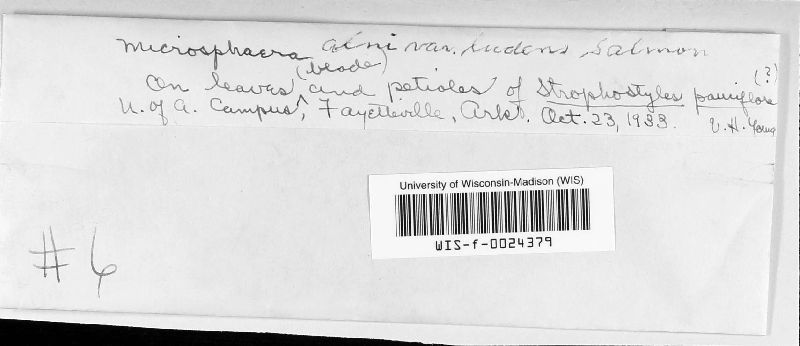 Microsphaera alni var. ludens, Salmon
On leaves and petioles of Strophostyles pauciflora (?)
U. of A. Campus, (blade) Fayetteville, Ark. Oct. 23, 1933. V. H. Young
University of Wisconsin-Madison (WIS)
WIS-f-0024379
# 6